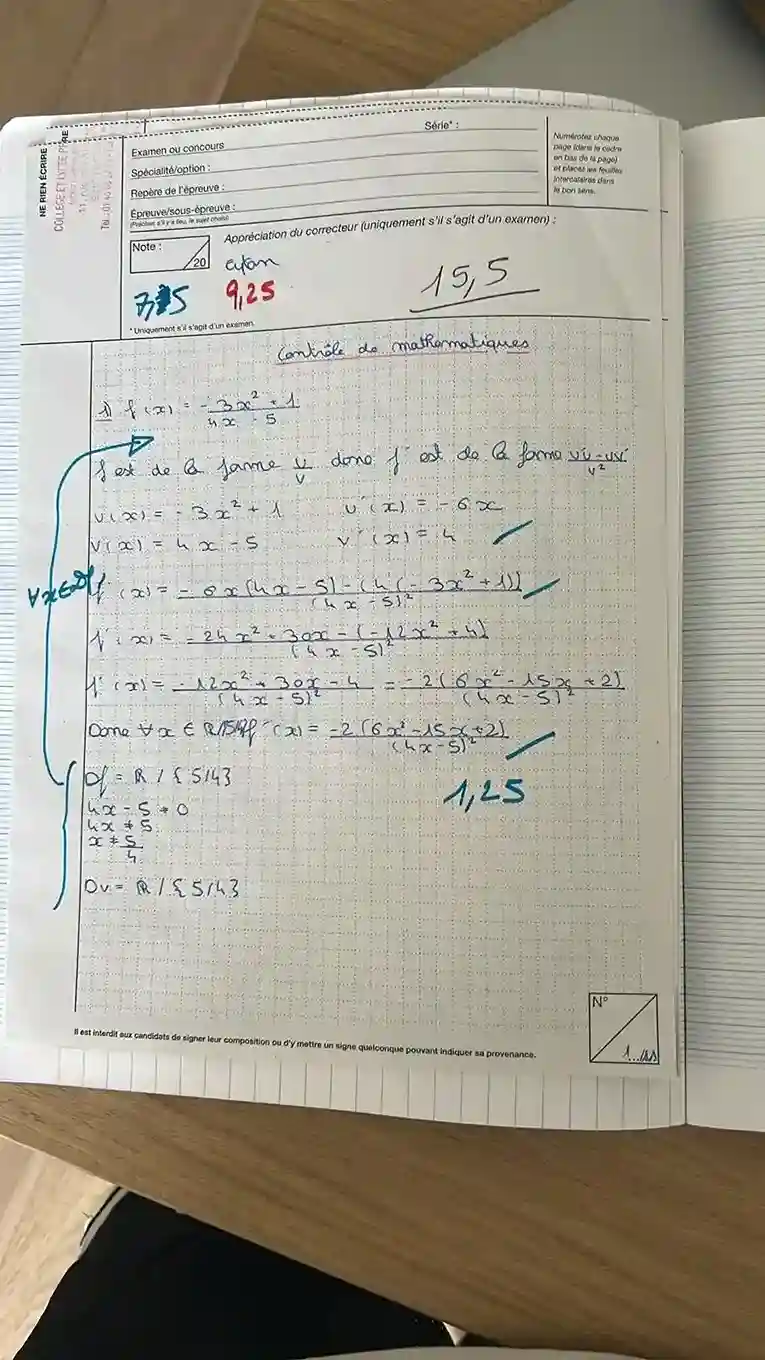 NE RIEN ÉCRIRE
COLLEGE ET LYCEE
Série* :
Examen ou concours
Spécialité/option :
Repère de l'épreuve :
Épreuve/sous-épreuve :
(Préciser, s'il y a lieu, le sujet choisi)
Numérotez chaque
page (dans le cadre
en bas de la page)
et placez les feuilles
intercalaires dans
le bon sens.
Note :
20
Appréciation du correcteur (uniquement s'il s'agit d'un examen) :
9,25
15,5
* Uniquement s'il s'agit d'un examen.
Contrôle de mathématiques
1) f(x) = -3x² + 1 / 4x - 5
f est de la forme u/v donc f' est de la forme u'v - uv' / v²
u(x) = -3x² + 1 u'(x) = -6x
v(x) = 4x - 5 v'(x) = 4
∀x∈Df f'(x) = -6x(4x - 5) - (4(-3x² + 1)) / (4x - 5)²
f'(x) = -24x² + 30x - (-12x² + 4) / (4x - 5)²
f'(x) = -12x² + 30x - 4 / (4x - 5)² = -2(6x² - 15x + 2) / (4x - 5)²
Donc ∀x ∈ R/{5/4} f'(x) = -2(6x² - 15x + 2) / (4x - 5)²
Df = R / {5/4}
1,25
4x - 5 ≠ 0
4x ≠ 5
x ≠ 5/4
Dv = R / {5/4}
N°
Il est interdit aux candidats de signer leur composition ou d'y mettre un signe quelconque pouvant indiquer sa provenance.